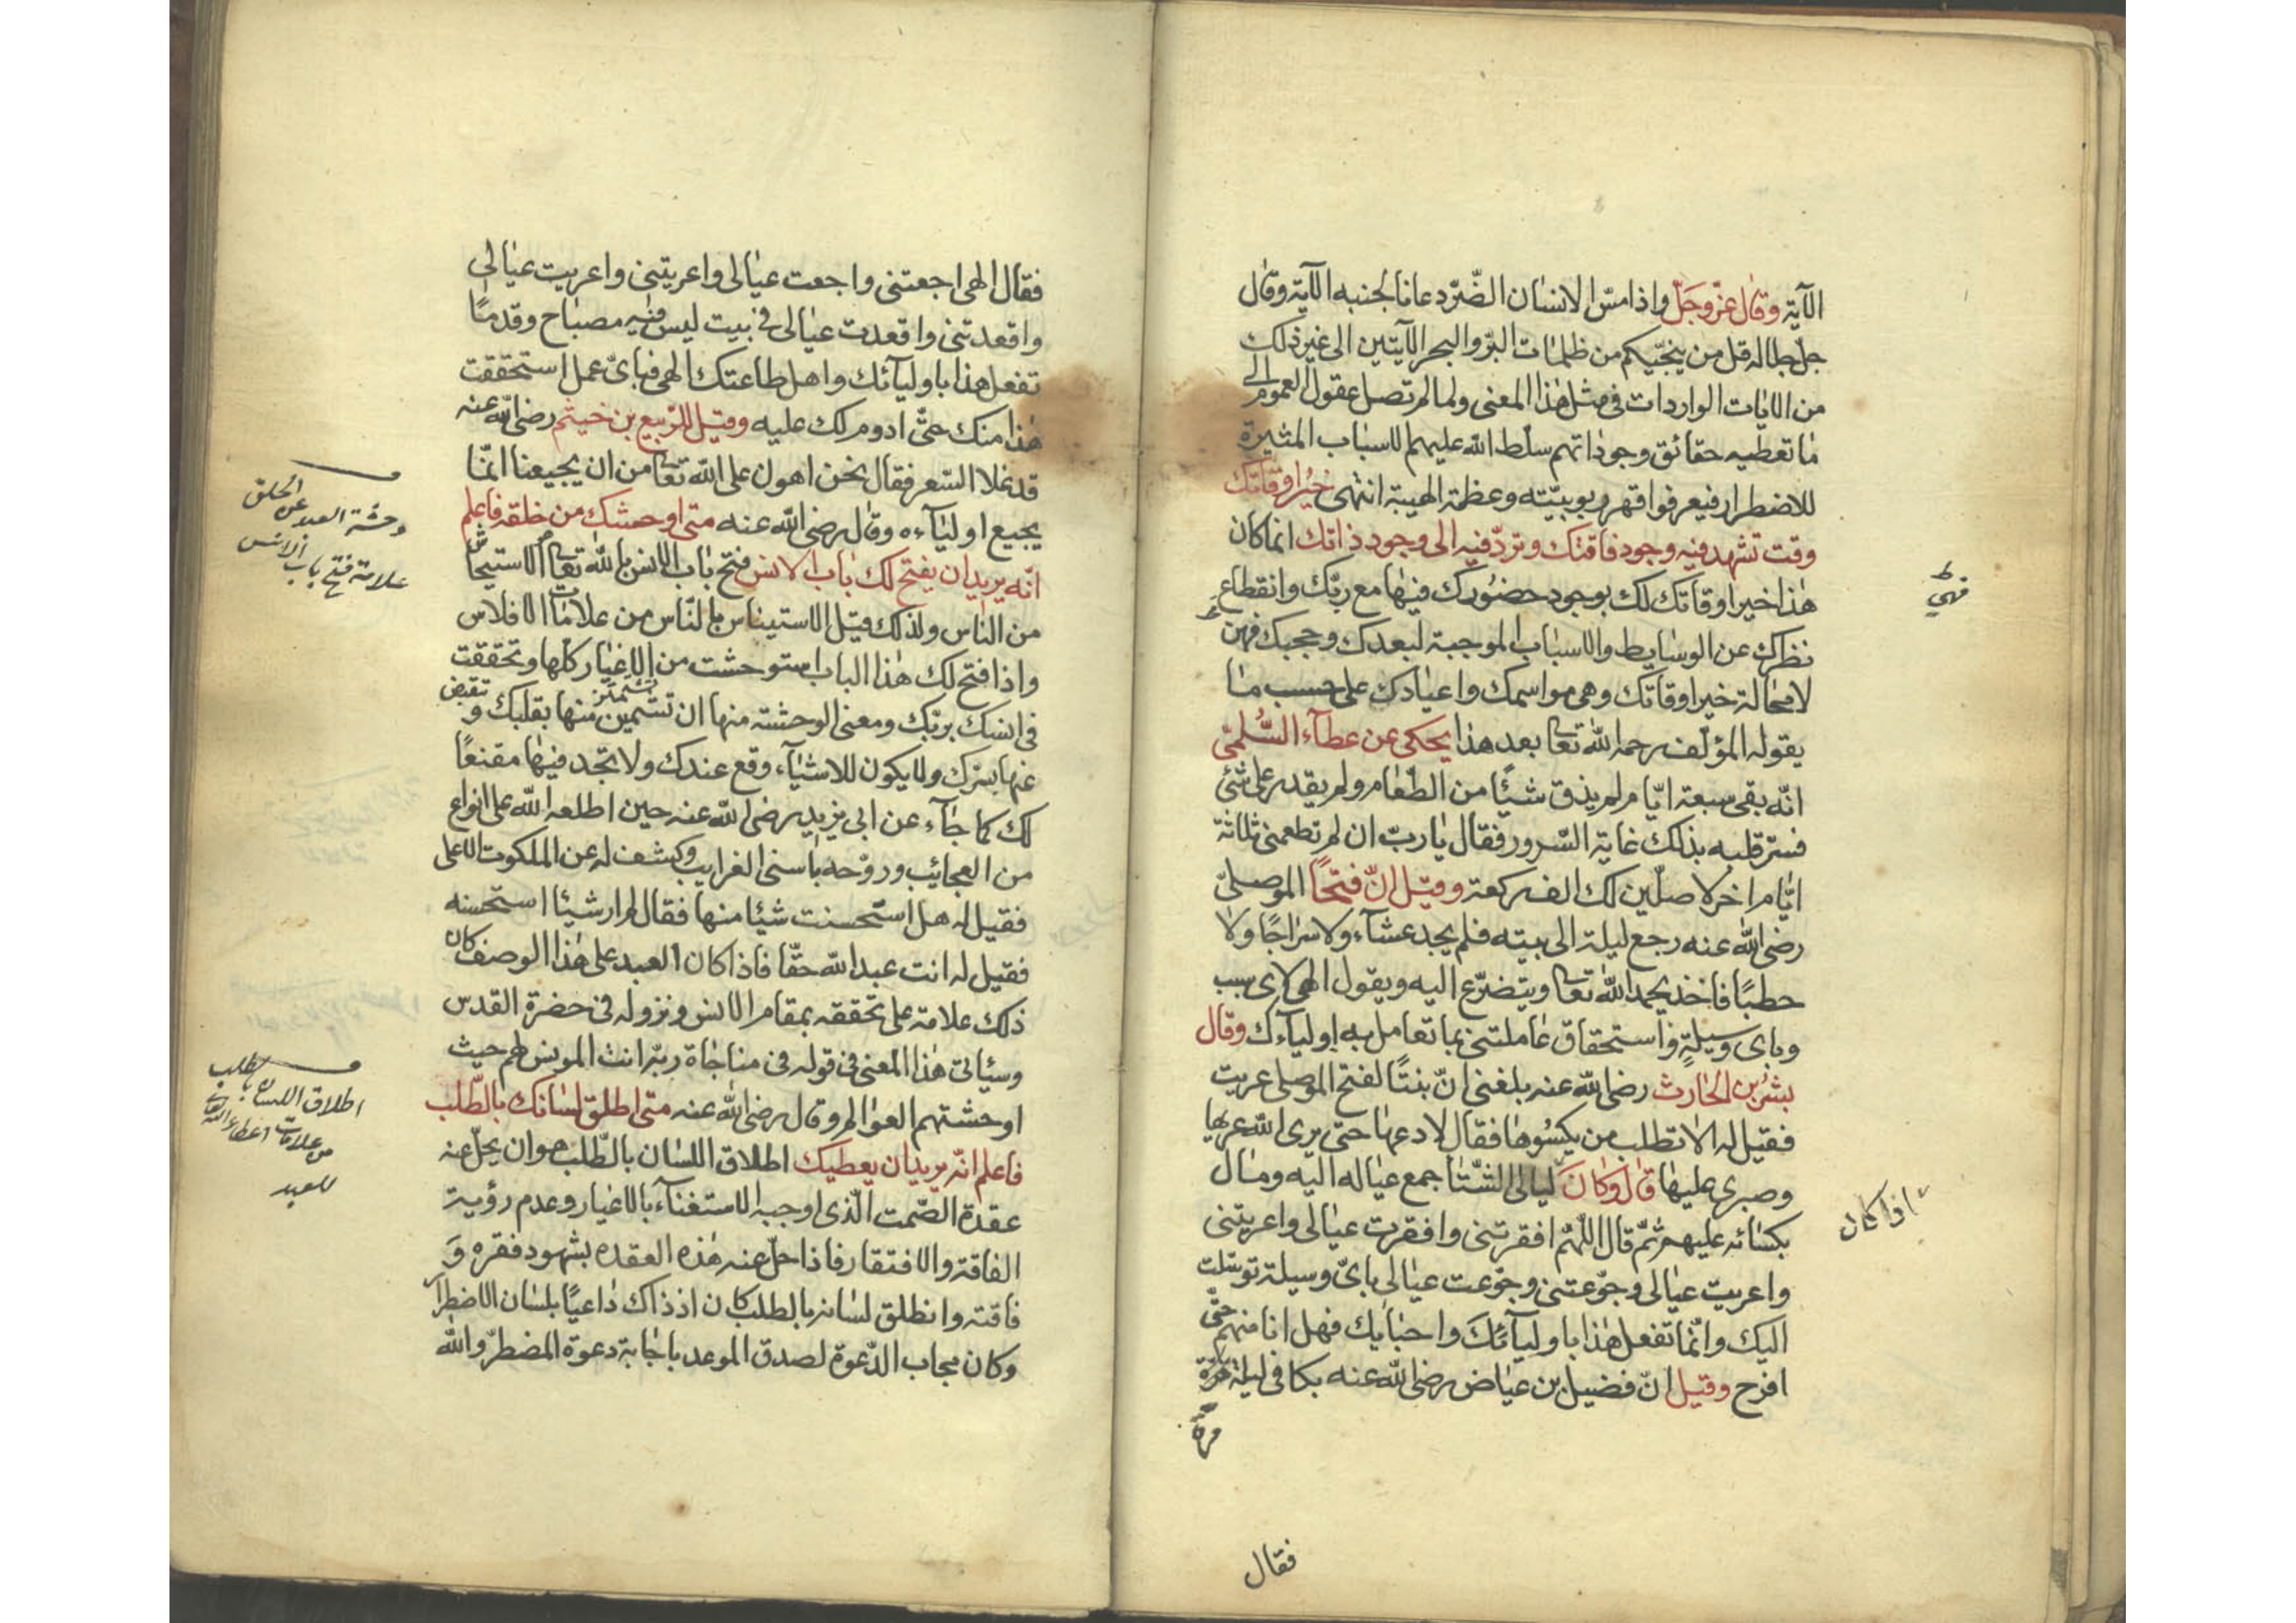 الآية وقال عزّ وجلّ واذا مسّ الانسان الضّرّ دعانا لجنبه الآية وقال
جلّ جلاله قل من ينجّيكم من ظلمات البرّ والبحر الآيتين الى غير ذلك
من الايات الواردات في مثل هذا المعنى ولما لم تصل عقول العموم الى
ما تعطيه حقائق وجوداتهم سلّط الله عليهم الاسباب المثيرة
للاضطرار فيعرفوا قهر ربوبيّته وعظمة الهيبة انتهى خير اوقاتك
وقت تشهد فيه وجود فاقتك وتردّ فيه الى وجود ذاتك انما كان
هذا خير اوقاتك لك بوجود حضورك فيها مع ربّك وانقطاع
نظرك عن الوسايط والاسباب الموجبة لبعدك وحجبك فهن
فهي
لا محالة خير اوقاتك وهى مواسمك واعيادك على حسب ما
يقوله المؤلّف رحمه الله تعا بعد هذا يحكى عن عطآء السّلمىّ
انّه بقى سبعة ايّام لم يذق شيئًا من الطّعام ولم يقدر على شئ
فسرّ قلبه بذلك غاية السّرور فقال يا ربّ ان لم تطعمنى ثلاثة
ايّام اخر لاصلّين لك الف ركعة وقيل انّ فتحًا الموصلىّ
رضى الله عنه رجع ليلة الى بيته فلم يجد عشآء ولا سراجًا ولا
حطبًا فاخذ يحمد الله تعا ويتضرّع اليه ويقول الهى لاى سبب
وباى وسيلةٍ واستحقاق عاملتنى بما تعامل به اوليآءك وقال
بشر بن الحارث رضى الله عنه بلغنى انّ بنتًا لفتح الموصلى عريت
فقيل له الا تطلب من يكسوها فقال لا ادعها حتى يرى الله عريها
وصبرى عليها قال وكان ليالى الشّتا جمع عياله اليه ومال
اذا كان
بكسائه عليهم ثمّ قال اللّهمّ افقرتنى وافقرت عيالى واعريتنى
واعريت عيالى وجوّعتنى وجوّعت عيالى باىّ وسيلة توسّلت
اليك وانّما تفعل هذا باوليآئك واحبابك فهل انا منهم حتّى
افرح وقيل انّ فضيل بن عياض رضى الله عنه بكا فى ليلة
قرة
فقال
فقال الهى اجعتنى واجعت عيالى واعريتنى واعريت عيالى
واقعدتنى واقعدت عيالى فى بيت ليس فيه مصباح وقدمًا
تفعل هذا باوليآئك واهل طاعتك الهى فباىّ عمل استحققت
هذا منك حتّى ادوم لك عليه وقيل للرّبيع بن خيثم رضى الله عنه
قد غلا السّعر فقال نحن اهون على الله تعا من ان يجيعنا انمّا
يجيع اوليآءه وقال رضى الله عنه متى اوحشك من خلقه فاعلم
وحشة العبد عن الخلق
علامة فتح باب الانس
انّه يريد ان يفتح لك باب الانس فتح باب الانس بالله تعا الاستيحاش
من الناس ولذلك قيل الاستيناس بالنّاس من علامات الافلاس
واذا فتح لك هذا الباب استوحشت من الاغيار كلّها وتحققت
فى انسك بربّك ومعنى الوحشة منها ان تشمئز منها بقلبك وتنقبض
عنها بسرّك ولا يكون للاشيآء وقع عندك ولا تجد فيها مقنعًا
لك كما جآء عن ابى يزيد رضى الله عنه حين اطلعه الله على انواع
من العجائيب وروّحه باسنى الغرايب وكشف له عن الملكوت الاعلى
فقيل له هل استحسنت شيئا منها فقال لم ار شيئا استحسنه
فقيل له انت عبد الله حقّا فاذا كان العبد على هذا الوصف كان
ذلك علامة على تحققه بمقام الانس ونزوله فى حضرة القدس
وسيأتى هذا المعنى فى قوله فى مناجاة ربّه انت المونس لهم حيث
اوحشتهم العوالم وقال رضى الله عنه متى اطلق لسانك بالطّلب
اطلاق اللسان بالطلب
من علامات اعطاء الله تعا
للعبد
فاعلم انّه يريد ان يعطيك اطلاق اللسان بالطّلب هو ان يحلّ عنه
عقدة الصّمت الّذى اوجبه الاستغنآء بالاغيار وعدم رؤية
الفاقة والافتقار فاذا حلّ عنه هذه العقده بشهود فقره و
فاقته وانطلق لسانه بالطلب كان اذ ذاك داعيًا بلسان الاضطرار
وكان مجاب الدّعوة لصدق الموعد باجابة دعوة المضطرّ والله